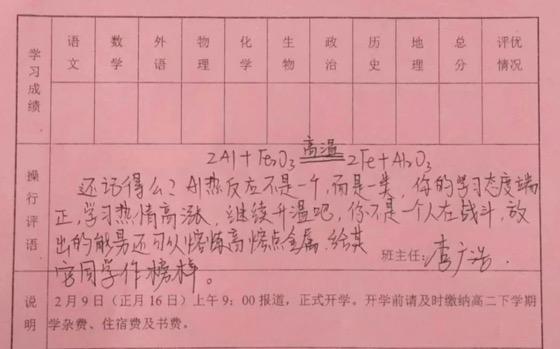 学习成绩 语文 数学 外语 物理 化学 生物 政治 历史 地理 总分 评优情况
操行评语
2Al+Fe₂O₃ 高温 2Fe+Al₂O₃
还记得么?Al热反应不是一个,而是一类,你的学习态度端
正,学习热情高涨,继续升温吧,你不是一个人在战斗,放
出的能量还可以熔炼高熔点金属,给其
它同学作榜样。
班主任:李广浩
说明 2月9日(正月16日)上午9:00报道,正式开学。开学前请及时缴纳高二下学期
学杂费、住宿费及书费。